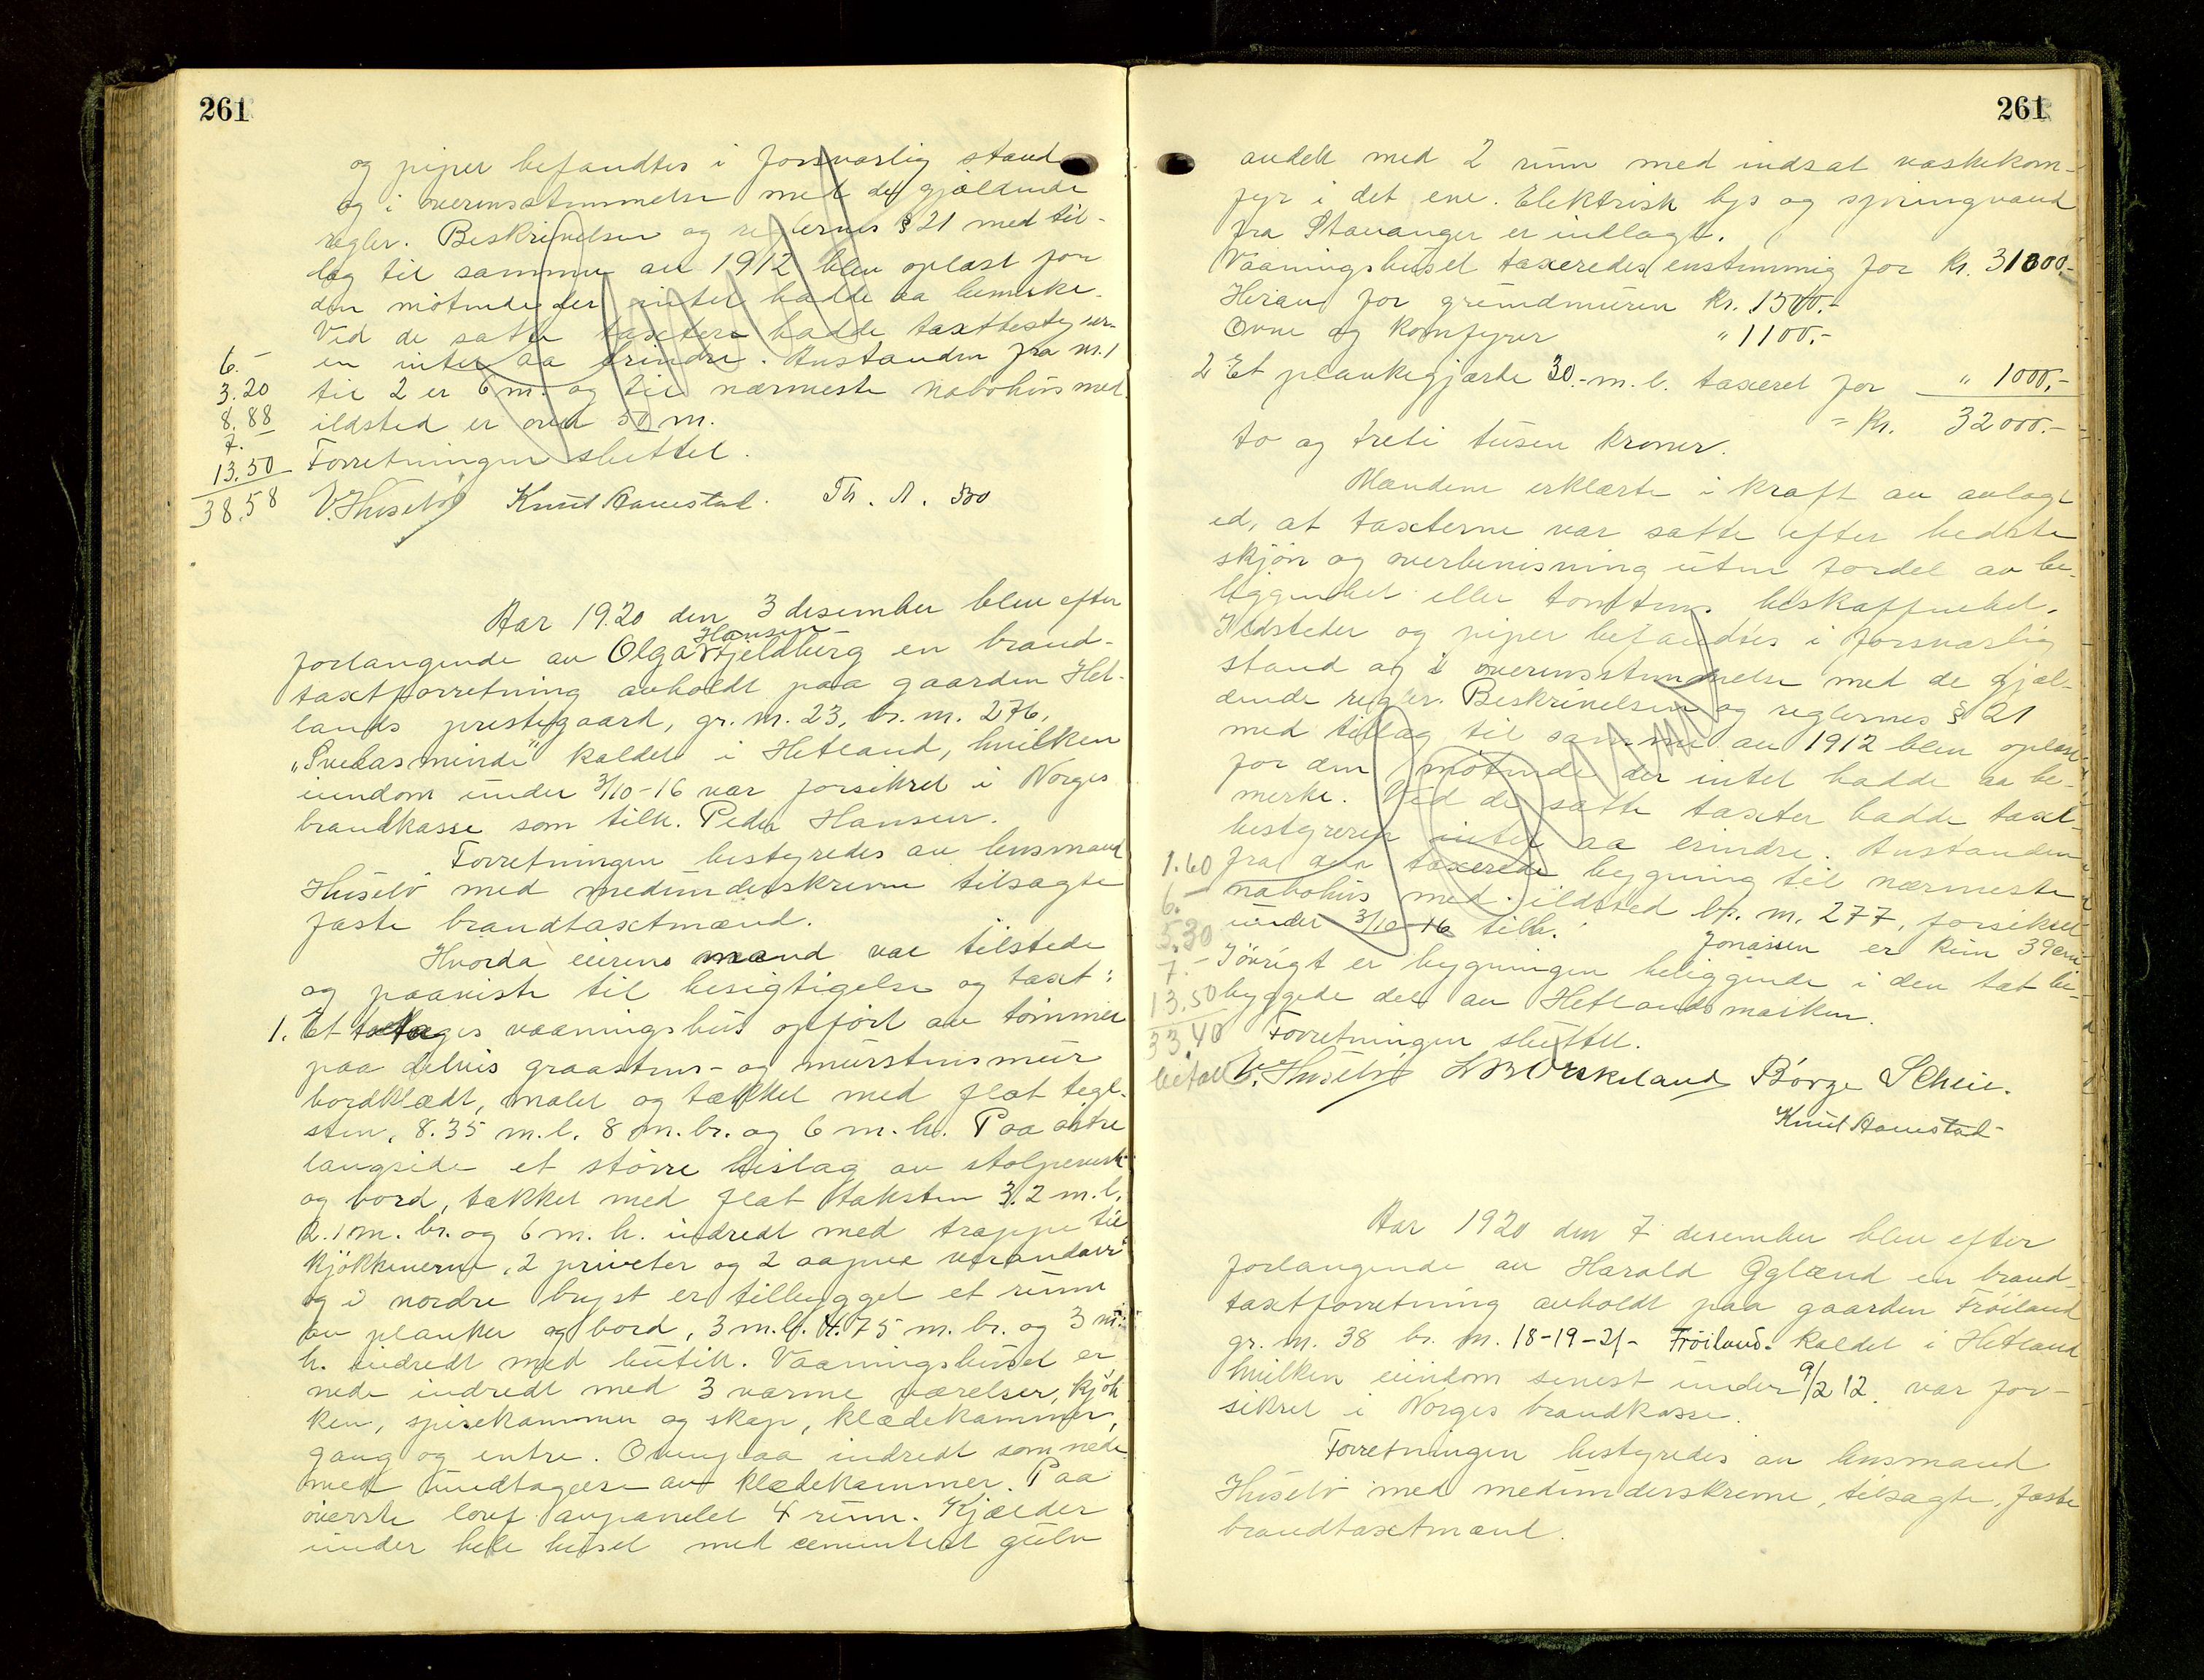 261
og piper befandtes i forsvarlig stand
og i overensstemmelse med de gjældende
regler. Beskrivelsen og reglernes § 21 med til-
læg til samme av 1912 blev oplæst for
den møtende der intet hadde aa bemerke.
Ved de satte taxter hadde taxtbestyrer-
en intet aa erindre. Avstanden fra nr. 1
til 2 er 6 m. og til nærmeste nabohus med
ildsted er over 50 m.
Forretningen sluttet.
6.-
3.20
8.88
7.-
13.50
38.58
V. Husebø Knut Haarestad. Th. A. Bø
Aar 1920 den 3 desember blev efter
Hansen
forlangende av Olga Fjeldberg en brand-
taxtforretning avholdt paa gaarden Het-
lands prestegaard, gr. nr. 23, br. nr. 276,
"Sveåsminde" kaldet i Hetland, hvilken
eiendom under 3/10-16 var forsikret i Norges
brandkasse som tilh. Peder Hansen.
Forretningen bestyredes av lensmand
Husebø med medunderskrevne tilsagte
faste brandtaxtmænd.
Hvorda eierens mand var tilstede
og paaviste til besigtigelse og taxt:
1. Et toetages vaaningshus opført av tømmer
paa delvis graastens- og murstensmur
bordklædt, malet og tækket med flat tegl-
sten, 8.35 m.l. 8 m. br. og 6 m. h. Paa østre
langside et større bislag av stolpeverk
og bord, tækket med flat taksten 3.2 m.l.
2.1 m. br. og 6 m. h. indredt med trappe til
kjøkkenerne, 2 priveter og 2 aapne verandaer
og i nordre bryst er tilbygget et rum
av planker og bord, 3 m.l. 4.75 m. br. og 3 m.
h. indredt med butik. Vaaningshuset er
nede indredt med 3 varme værelser, kjøk
ken, spisekammer og skap, klædekammer,
gang og entre. Ovenpaa indredt som nede
med undtagelse av klædekammer. Paa
øverste loft avpanelet 4 rum. Kjælder
under hele huset med cementert gulv
261
avdelt med 2 rum med indsat vaskekom-
fyr i det ene. Elektrisk lys og springvand
fra Stavanger er indlagt.
Vaaningshuset taxeredes enstemmig for Kr. 31000.-
Herav for grundmuren Kr. 1500.-
Ovne og komfyrer " 1100.-
2 Et plankegjærde 30.- m. l. taxeret for " 1000.-
= Kr. 32000.-
to og treti tusen kroner.
Mændene erklærte i kraft av avlagt
ed, at taxterne var satte efter bedste
skjøn og overbevisning uten fordel av be-
liggenhet eller tomtens beskaffenhet.
Ildsteder og piper befandtes i forsvarlig
stand og i overensstemmelse med de gjæl-
dende regler. Beskrivelsen og reglernes § 21
med tillæg til samme av 1912 blev oplæst
for den møtende der intet hadde aa be-
merke. Ved de satte taxter hadde taxt-
bestyreren intet aa erindre. Avstanden
fra den taxerede bygning til nærmeste
nabohus med ildsted br. nr. 277, forsikret
under 3/10-16 tilh. Jonassen er kun 39 cm
Iøvrigt er bygningen beliggende i den tæt be-
byggede del av Hetlandsmarken.
Forretningen sluttet.
1.60
6.-
5.30
7.-
13.50
33.40
betalt
V. Husebø Børge Scheie.
Knut Haarestad
Aar 1920 den 7 desember blev efter
forlangende av Harald Oglænd en brand-
taxtforretning avholdt paa gaarden Frøiland
gr. nr. 38 br. nr. 18-19-21- Frøiland. kaldet i Hetland
hvilken eiendom senest under 9/2 12. var for-
sikret i Norges brandkasse.
Forretningen bestyredes av lensmand
Husebø med medunderskrevne, tilsagte, faste
brandtaxtmænd.